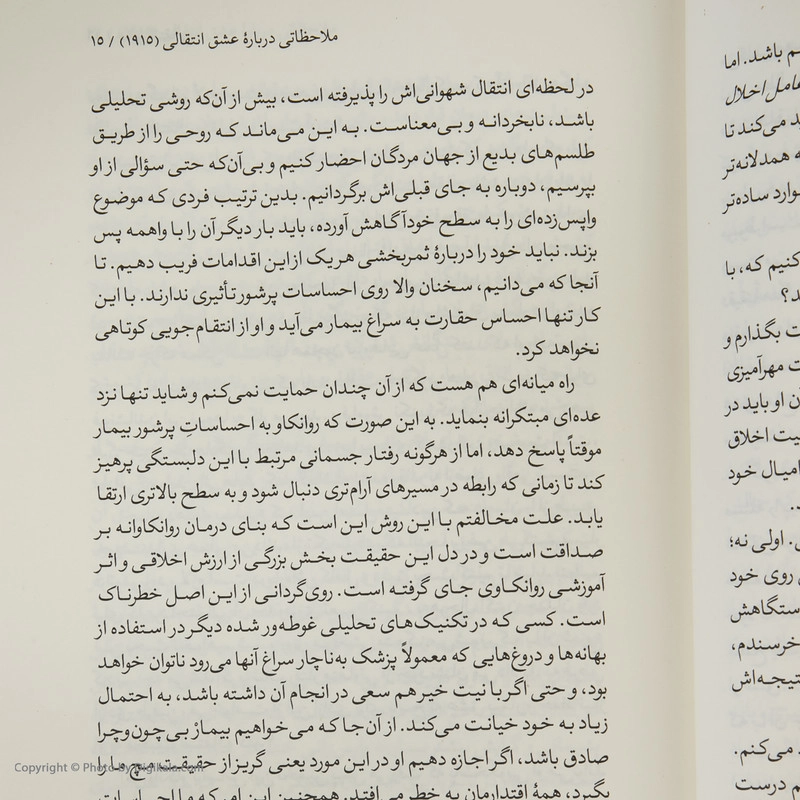 ملاحظاتی دربارهٔ عشق انتقالی (۱۹۱۵) / ۱۵
در لحظه‌ای انتقال شهوانی‌اش را پذیرفته است، بیش از آن‌که روشی تحلیلی
باشد، نابخردانه و بی‌معناست. به این می‌ماند که روحی را از طریق
طلسم‌های بدیع از جهان مردگان احضار کنیم و بی‌آن‌که حتی سؤالی از او
بپرسیم، دوباره به جای قبلی‌اش برگردانیم. بدین ترتیب فردی که موضوع
واپس‌زده‌ای را به سطح خودآگاهش آورده، باید بار دیگر آن را با واهمه پس
بزند. نباید خود را دربارهٔ ثمربخشی هر یک از این اقدامات فریب دهیم. تا
آنجا که می‌دانیم، سخنان والا روی احساسات پرشور تأثیری ندارند. با این
کار تنها احساس حقارت به سراغ بیمار می‌آید و او از انتقام‌جویی کوتاهی
نخواهد کرد.
راه میانه‌ای هم هست که از آن چندان حمایت نمی‌کنم و شاید تنها نزد
عده‌ای مبتکرانه بنماید. به این صورت که روانکاو به احساساتِ پرشور بیمار
موقتاً پاسخ دهد، اما از هرگونه رفتار جسمانی مرتبط با این دلبستگی پرهیز
کند تا زمانی که رابطه در مسیرهای آرام‌تری دنبال شود و به سطح بالاتری ارتقا
یابد. علت مخالفتم با این روش این است که بنای درمان روانکاوانه بر
صداقت است و در دل این حقیقت بخش بزرگی از ارزش اخلاقی و اثر
آموزشی روانکاوی جای گرفته است. روی‌گردانی از این اصل خطرناک
است. کسی که در تکنیک‌های تحلیلی غوطه‌ور شده دیگر در استفاده از
بهانه‌ها و دروغ‌هایی که معمولاً پزشک به‌ناچار سراغ آنها می‌رود ناتوان خواهد
بود، و حتی اگر با نیت خیر هم سعی در انجام آن داشته باشد، به احتمال
زیاد به خود خیانت می‌کند. از آن‌جا که می‌خواهیم بیمارْ بی‌چون‌وچرا
صادق باشد، اگر اجازه دهیم او در این مورد یعنی گریز از حقیقت مچ ما را
بگیرد، همهٔ اقتدارمان به خطر می‌افتد. همچنین این امر که ما احساسات
م باشد. اما
عامل اخلال
د می‌کند تا
ه همدلانه‌تر
وارد ساده‌تر
کنیم که، با
د؟
ت بگذارم و
ت مهرآمیزی
ن او باید در
یت اخلاق
امیال خود
د.
ی. اولی نه؛
روی خود
ستگاهش
خرسندم،
تیجه‌اش
د می‌کنم.
م درست
Copyright © Photo By Digikala.com